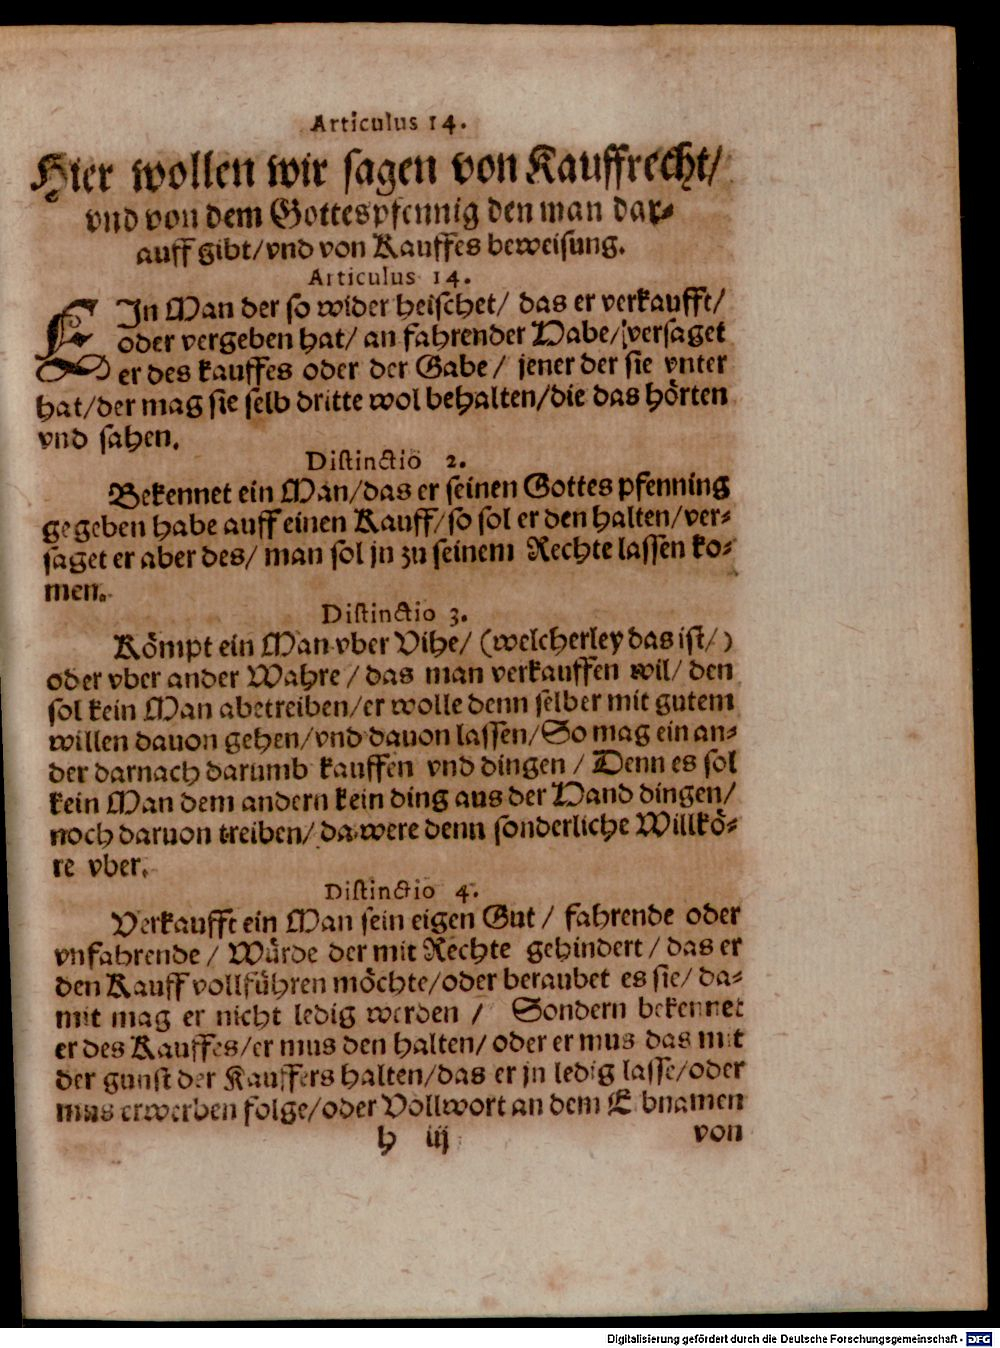 Articulus 14.
Hier wollen wir sagen von Kauffrecht/
vnd von dem Gottespfennig den man dar-
auff gibt/vnd von Kauffes beweisung.
Articulus 14.
EJn Man der so wider heischet/ das er verkaufft/
oder vergeben hat/ an fahrender Habe/versaget
er des kauffes oder der Gabe/ jener der sie vnter
hat/der mag sie selb dritte wol behalten/die das hörten
vnd sahen.
Distinctio 2.
Bekennet ein Man/das er seinen Gottes pfenning
gegeben habe auff einen Kauff/so sol er den halten/ver-
saget er aber des/ man sol jn zu seinem Rechte lassen ko-
men.
Distinctio 3.
Kömpt ein Man vber Vihe/ (welcherley das ist/)
oder vber ander Wahre/das man verkauffen wil/ den
sol kein Man abetreiben/er wolle denn selber mit gutem
willen dauon gehen/vnd dauon lassen/So mag ein an-
der darnach darumb kauffen vnd dingen/ Denn es sol
kein Man dem andern kein ding aus der Hand dingen/
noch daruon treiben/ da were denn sonderliche Willkö-
re vber.
Distinctio 4.
Verkaufft ein Man sein eigen Gut/ fahrende oder
vnfahrende/ Würde der mit Rechte gehindert/das er
den Kauff vollführen möchte/oder beraubet es sie/da-
mit mag er nicht ledig werden/ Sondern bekennet
er des Kauffes/er mus den halten/oder er mus das mit
der gunst der Kauffers halten/das er jn ledig lasse/oder
mus erwerben folge/oder Vollwort an dem Ebnamen
h iij von
Digitalisierung gefördert durch die Deutsche Forschungsgemeinschaft - DFG